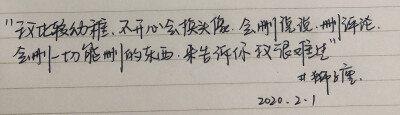 "我比较幼稚、不开心会换头像. 会删说说. 删评论.
会删一切能删的东西. 来告诉你我很难过"
#狮子座.
2020.2.1